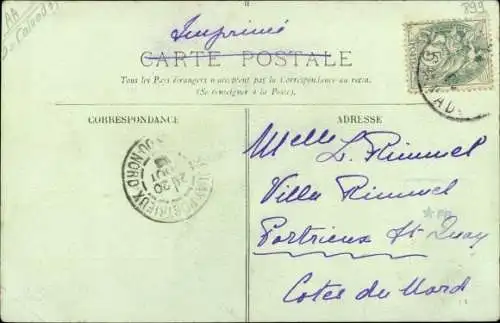 899
AA
Imprimé
CARTE POSTALE
Tous les Pays étrangers n'acceptent pas la Correspondance au recto.
(Se renseigner à la Poste).
CORRESPONDANCE
ADRESSE
Melle L. Rimmel
Villa Rimmel
Portrieux St Quay
Cotes du Nord
PORTRIEUX
DU NORD
20